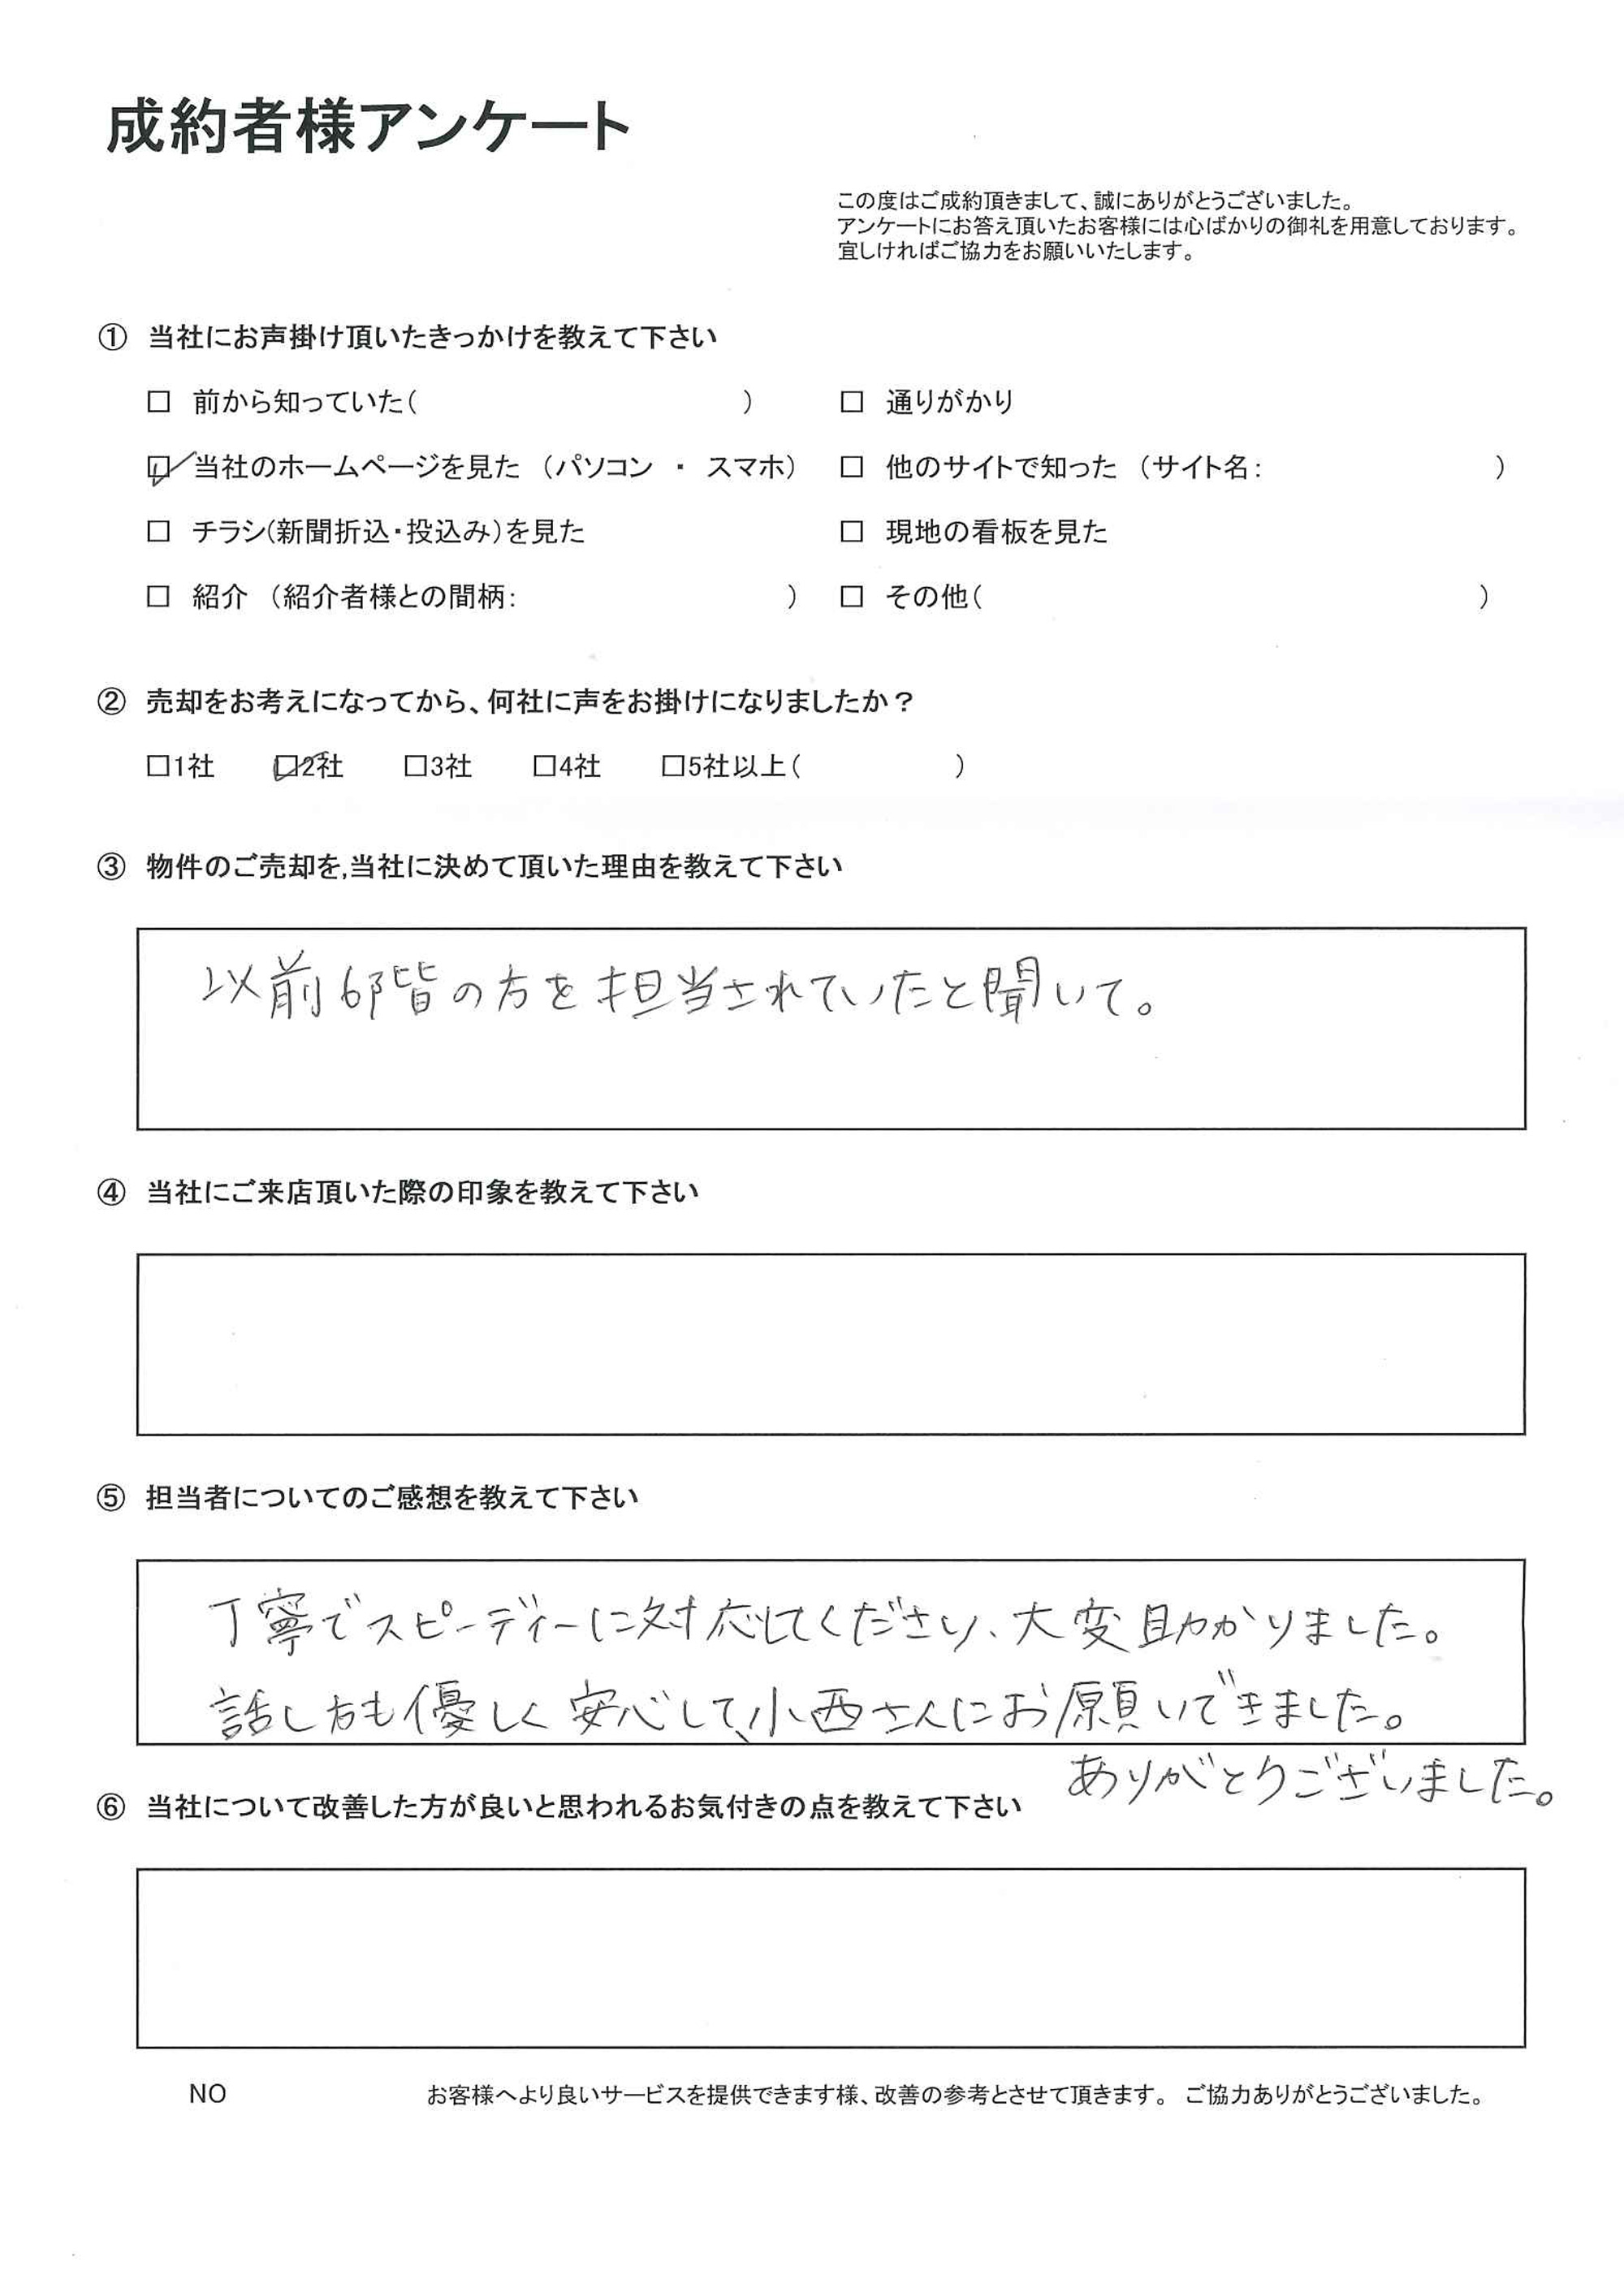 成約者様アンケート
この度はご成約頂きまして、誠にありがとうございました。
アンケートにお答え頂いたお客様には心ばかりの御礼を用意しております。
宜しければご協力をお願いいたします。
① 当社にお声掛け頂いたきっかけを教えて下さい
□ 前から知っていた( ) □ 通りがかり
☑ 当社のホームページを見た (パソコン ・ スマホ) □ 他のサイトで知った (サイト名: )
□ チラシ(新聞折込・投込み)を見た □ 現地の看板を見た
□ 紹介 (紹介者様との間柄: ) □ その他( )
② 売却をお考えになってから、何社に声をお掛けになりましたか?
□1社 ☑2社 □3社 □4社 □5社以上( )
③ 物件のご売却を,当社に決めて頂いた理由を教えて下さい
以前6階の方を担当されていたと聞いて。
④ 当社にご来店頂いた際の印象を教えて下さい
⑤ 担当者についてのご感想を教えて下さい
丁寧でスピーディーに対応してくださり、大変助かりました。
話し方も優しく安心して、小西さんにお願いできました。
ありがとうございました。
⑥ 当社について改善した方が良いと思われるお気付きの点を教えて下さい
NO お客様へより良いサービスを提供できます様、改善の参考とさせて頂きます。 ご協力ありがとうございました。